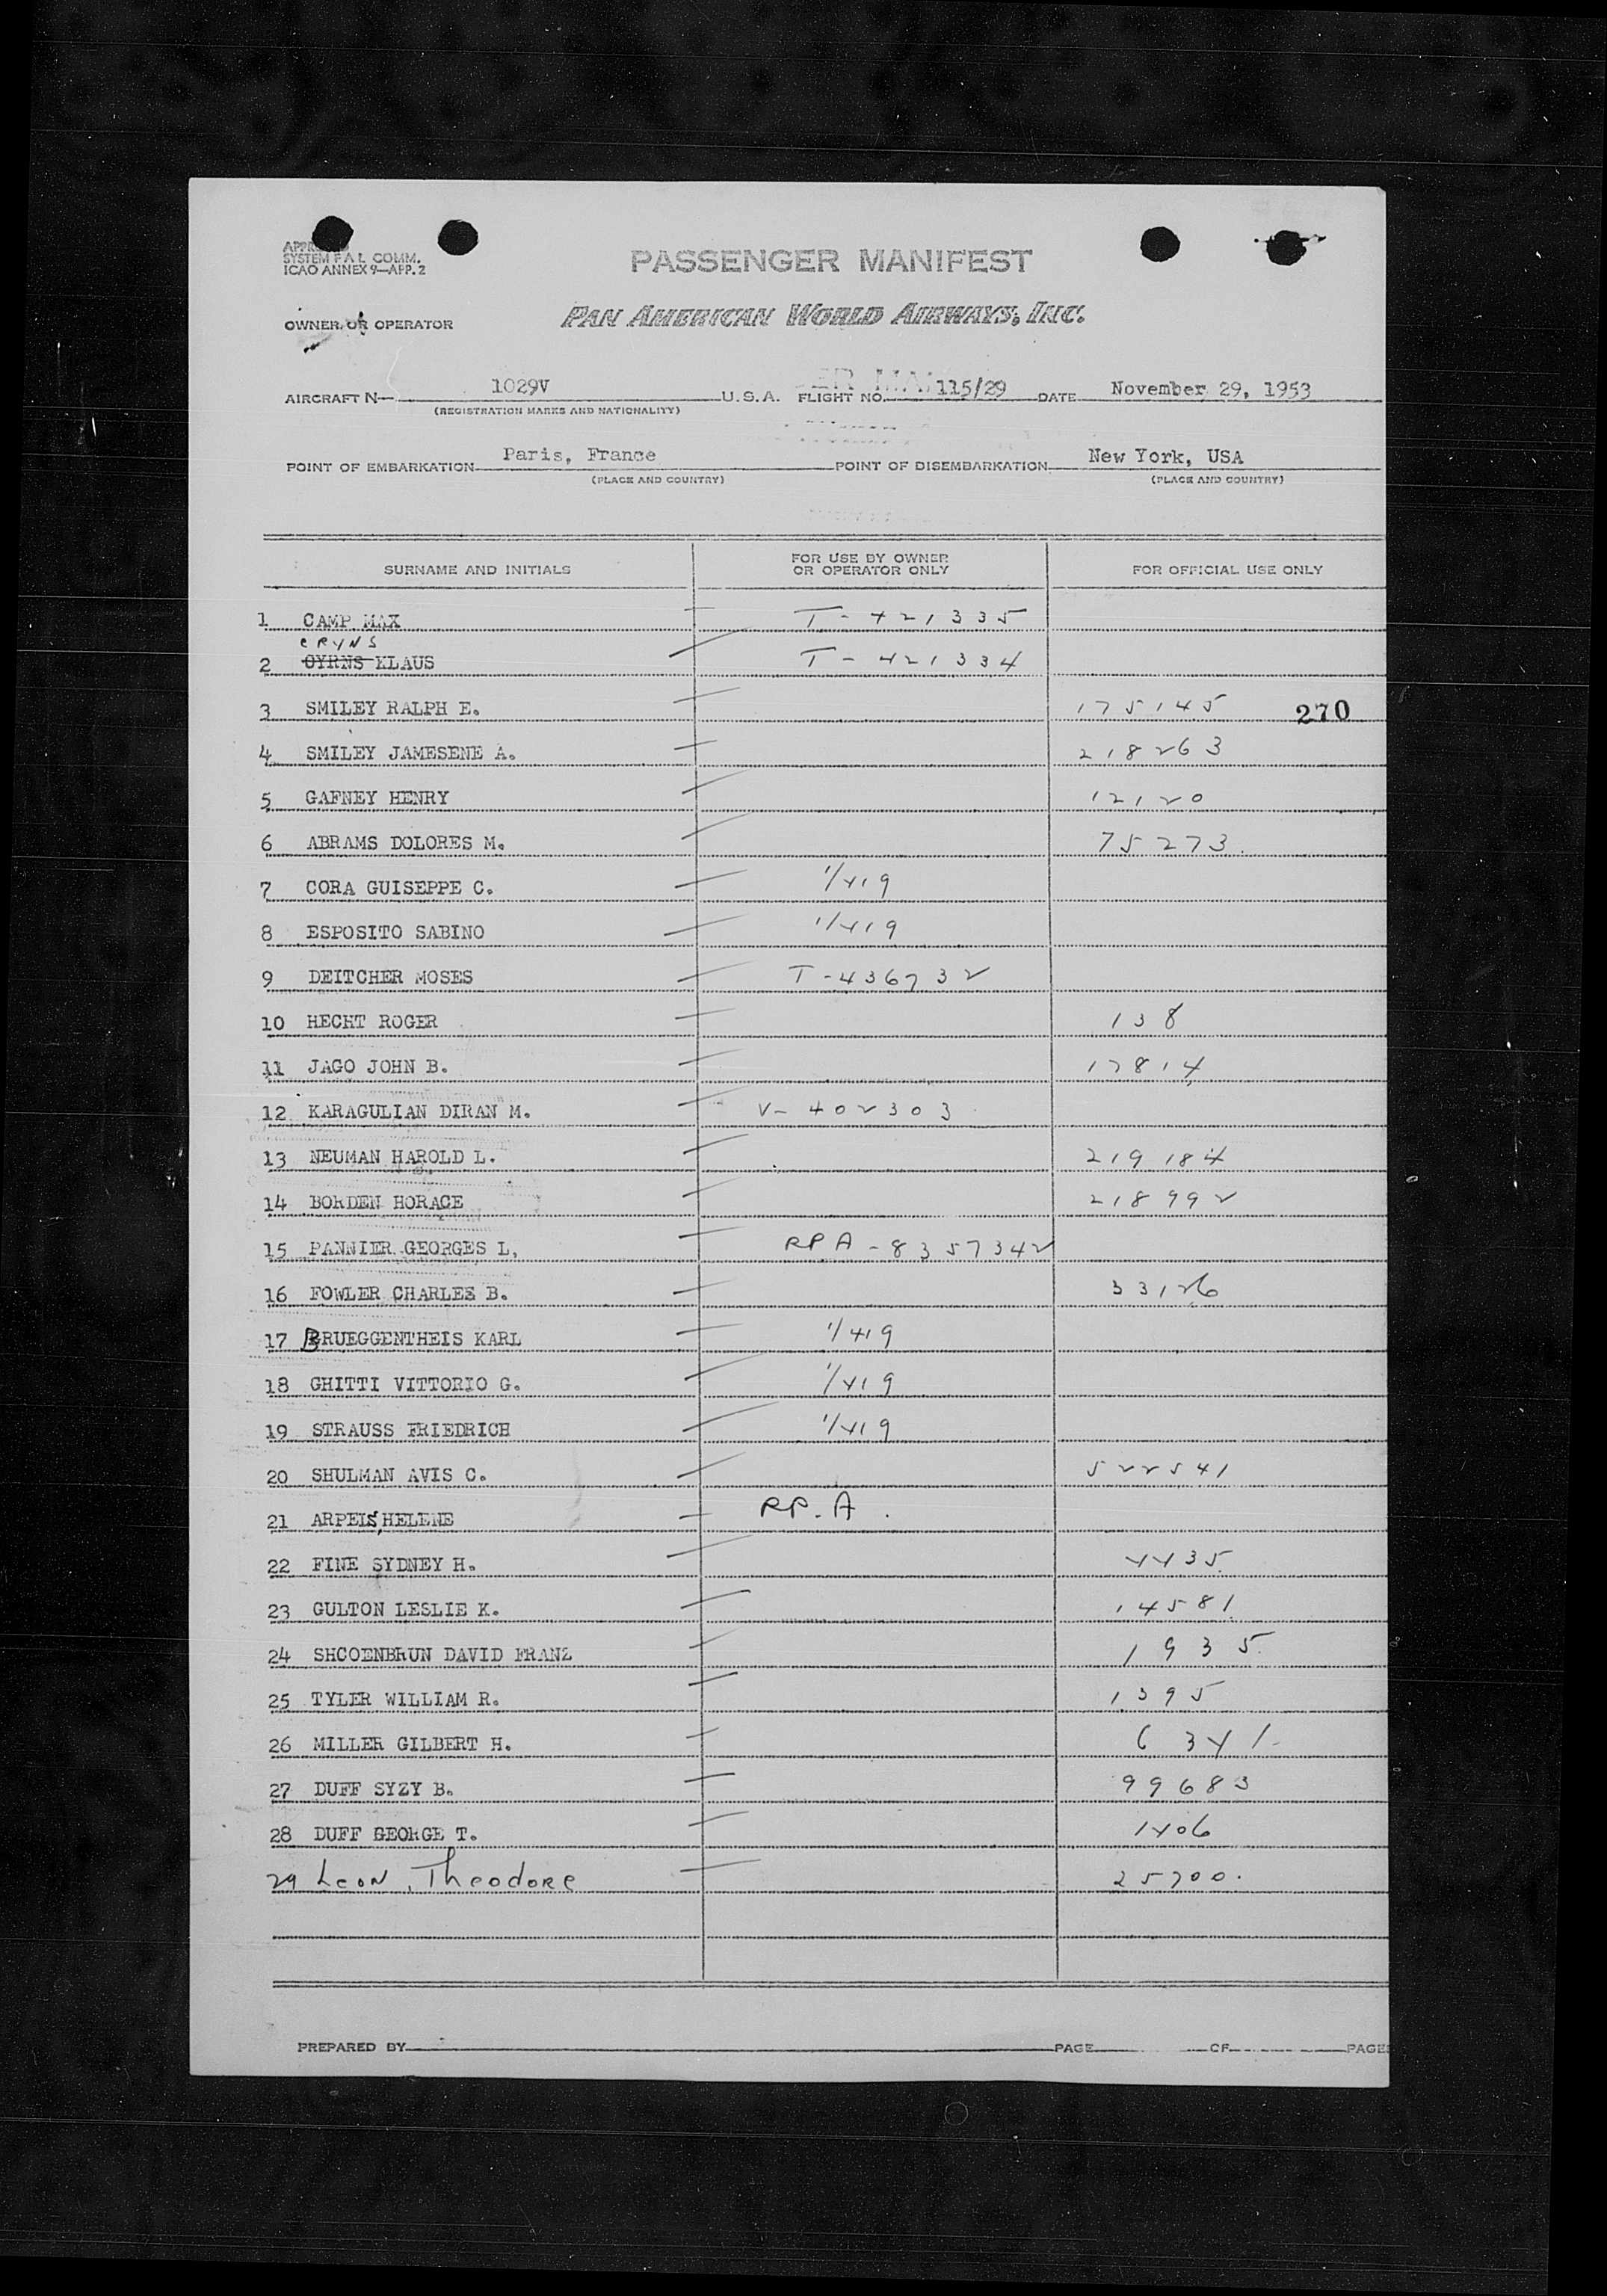 SYSTEM F A L COMM.
ICAO ANNEX 9—APP. 2
PASSENGER MANIFEST
OWNER OR OPERATOR
PAN AMERICAN WORLD AIRWAYS, INC.
AIRCRAFT N— 1029V U.S.A. FLIGHT NO. 115/29 DATE November 29, 1953
(REGISTRATION MARKS AND NATIONALITY)
POINT OF EMBARKATION Paris, France POINT OF DISEMBARKATION New York, USA
(PLACE AND COUNTRY) (PLACE AND COUNTRY)
SURNAME AND INITIALS FOR USE BY OWNER OR OPERATOR ONLY FOR OFFICIAL USE ONLY
1 CAMP MAX T-421335
CRYNS
2 CYRNS KLAUS T-421334
3 SMILEY RALPH E. 175145 270
4 SMILEY JAMESENE A. 218263
5 GAFNEY HENRY 12120
6 ABRAMS DOLORES M. 75273.
7 CORA GUISEPPE C. 1/419
8 ESPOSITO SABINO 1/419
9 DEITCHER MOSES T-436732
10 HECHT ROGER 138
11 JAGO JOHN B. 17814
12 KARAGULIAN DIRAN M. V-402303
13 NEUMAN HAROLD L. 219184
14 BORDEN HORACE 218992
15 PANNIER GEORGES L, RPA-8357342
16 FOWLER CHARLES B. 33126
17 BRUEGGENTHEIS KARL 1/419
18 GHITTI VITTORIO G. 1/419
19 STRAUSS FRIEDRICH 1/419
20 SHULMAN AVIS C. 522541
21 ARPELS,HELENE RP.A.
22 FINE SYDNEY H. 4435
23 GULTON LESLIE K. 14581
24 SHCOENBRUN DAVID FRANZ 1935
25 TYLER WILLIAM R. 1395
26 MILLER GILBERT H. 6341
27 DUFF SYZY B. 99683
28 DUFF GEORGE T. 1406
29 Leon, Theodore 25700.
PREPARED BY PAGE OF PAGE